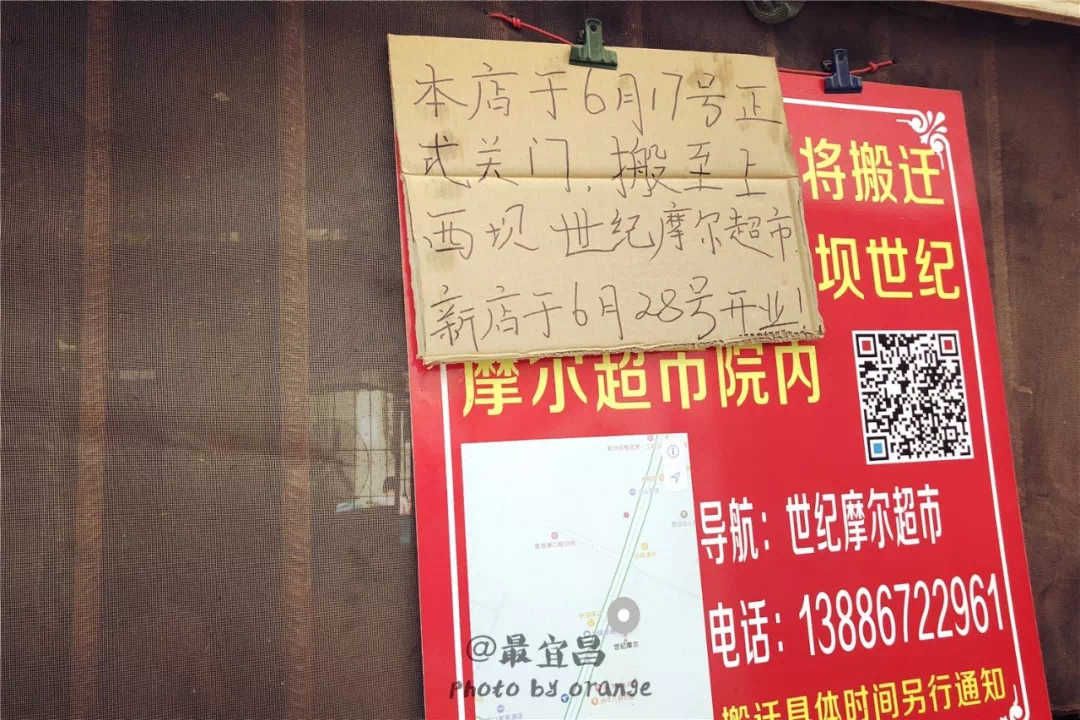 本店于6月17号正
式关门,搬至上
西坝世纪摩尔超市.
新店于6月28号开业!
将搬迁
坝世纪
摩尔超市院内
导航：世纪摩尔超市
电话：13886722961
搬迁具体时间另行通知
世纪摩尔
@最宜昌
photo by orange